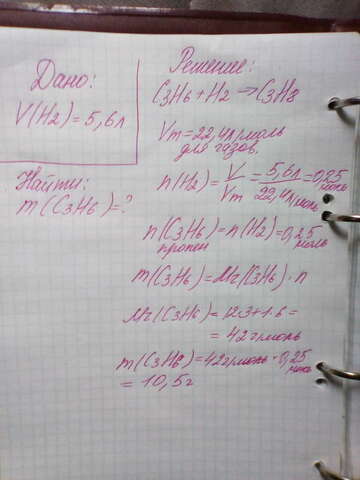 Дано:
V(H2)=5,6л
Найти:
m(C3H6)=?
Решение:
C3H6+H2→C3H8
Vm=22,4л/моль
для газов.
n(H2)=V/Vm=5,6л/22,4л/моль=0,25
моль
n(C3H6)=n(H2)=0,25
пропен моль
m(C3H6)=Mr(C3H6)·n
Mr(C3H6)=12·3+1·6=
=42г/моль
m(C3H6)=42г/моль·0,25
моль
=10,5г